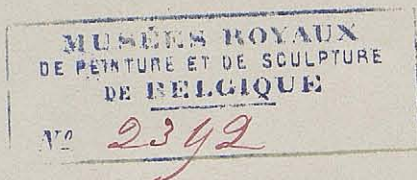 MUSÉES ROYAUX
DE PEINTURE ET DE SCULPTURE
DE BELGIQUE
Nº 2392